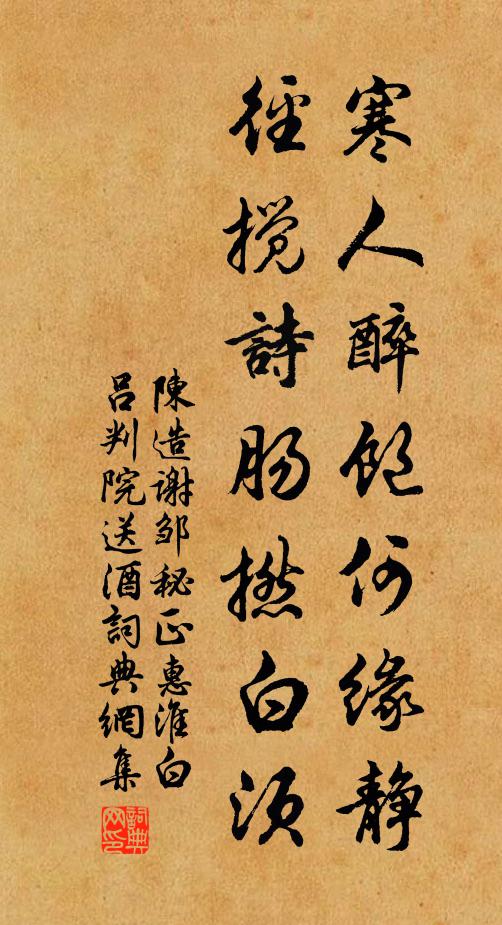 寒人醉飽何緣静
徑攪詩肠撚白須
陳造謝邹秘正惠淮白
吕判院送酒詞典網集
詞典网印